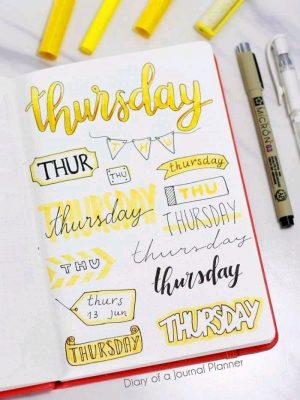 thursday
THUR
T H U
THU
thursday
THU
THURSDAY
thursday
THURSDAY
thursday
THU
thursday
thurs
13 jun
THURSDAY
THURSDAY
MICRON
Diary of a Journal Planner